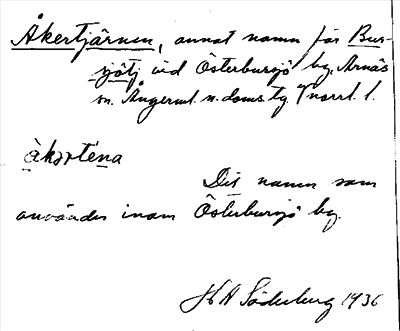 Åkertjärnen, annat namn för Bur-
sjötj vid Österbursjö by, Arnäs
sn. Ångerml. n. doms. tg. Norrl. l.
åkərténa
Det namn som
användes inom Österbursjö by.
HA Söderberg 1936